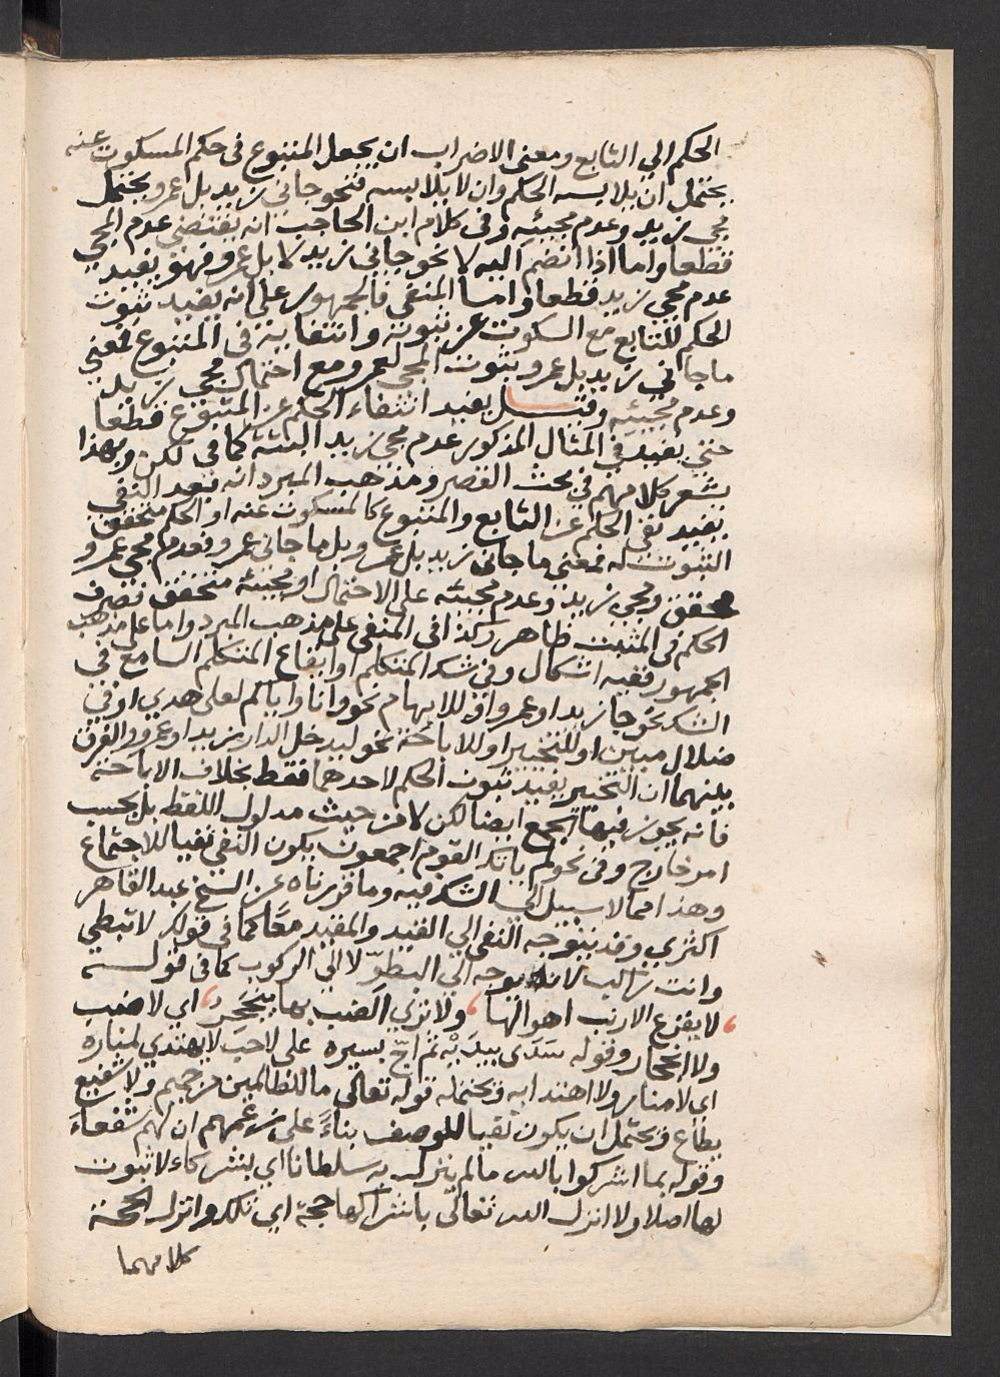 الحكم الي التابع ومعنى الاضراب ان يجعل المتبوع فى حكم المسكوت عنه
يحتمل ان يلابسه الحكم وان لا يلابسه فنحو جانى زيد بل عمرو يحتمل
مجى زيد وعدم مجيئه وفى كلام ابن الحاجب انه يقتضى عدم المجي
قطعا واما اذا انضم اليه لا نحو جانى زيد لا بل عمرو فهو يفيد
عدم مجي زيد قطعا واما المنفى فالجمهور على انه يفيد ثبوت
الحكم للتابع مع السكوت عن ثبوته وانتفايه فى المتبوع فمعني
ماجانى زيد بل عمرو ثبوت المجى لعمرو مع احتمال مجى زيد
وعدم مجيئه وقيل يفيد انتفاء الحكم عن المتبوع قطعا
حتى يفيد فى المثال المذكور عدم مجى زيد البتة كما في لكن وبهذا
يشعر كلامهم في بحث القصر ومذهب المبرد انه بعد النفي
يفيد نفى الحكم عن التابع والمتبوع كالمسكوت عنه او الحكم متحقق
الثبوت له فمعني ما جانى زيد بل عمرو بل ما جانى عمرو فعدم مجى عمرو
محقق ومجي زيد وعدم مجيئه على الاحتمال او مجيئه متحقق فصرف
الحكم فى المثبت ظاهر وكذا فى المنفى على مذهب المبرد واما على مذهب
الجمهور ففيه اشكال وفى شك المتكلم او ايقاع المتكلم السامع فى
الشك نحو جا زيد او عمرو او للابهام نحو وانا واياكم لعلى هدى او فى
ضلال مبين او للتخيير او للاباحة نحو ليدخل الدار زيد او عمرو والفرق
بينهما ان التخيير يفيد ثبوت الحكم لاحدهما فقط بخلاف الاباحة
فانه يجوز فيها الجمع ايضا لكن لا من حيث مدلول اللفظ بل بحسب
امر خارج وفى نحو لم ياتك القوم اجمعون يكون النفي نفيا للاجتماع
وهذا مما لا سبيل الى الشك فيه وما قررناه عن الشيخ عبد القاهر
اكثرى وقد يتوجه النفى الي القيد والمقيد معا كما فى قولك لا تبطي
وانت راكب لانه يوجه الي البطوّ لا الى الركوب كما فى قوله
لا يفزع الارنب اهوالها ولا ترى الضب بها ينجحر اى لا ضب
ولا انجحار وقوله سدى بيديه ثم اجّ بسيره على لاحب لا يهتدي لمناره
اى لا منار ولا اهتدا به ويحتمله قوله تعالى ما للظالمين من حميم ولا شفيع
يطاع ويحتمل ان يكون نفيا للوصف بناءً على زعمهم ان لهم شفعاء
وقوله بما اشركوا بالله مالم ينزل به سلطانا اي بشركاء لا ثبوت
لها اصلا ولا انزل الله تعالى باشراكها حجة اى تلك وانزل الحجة
كلامهما